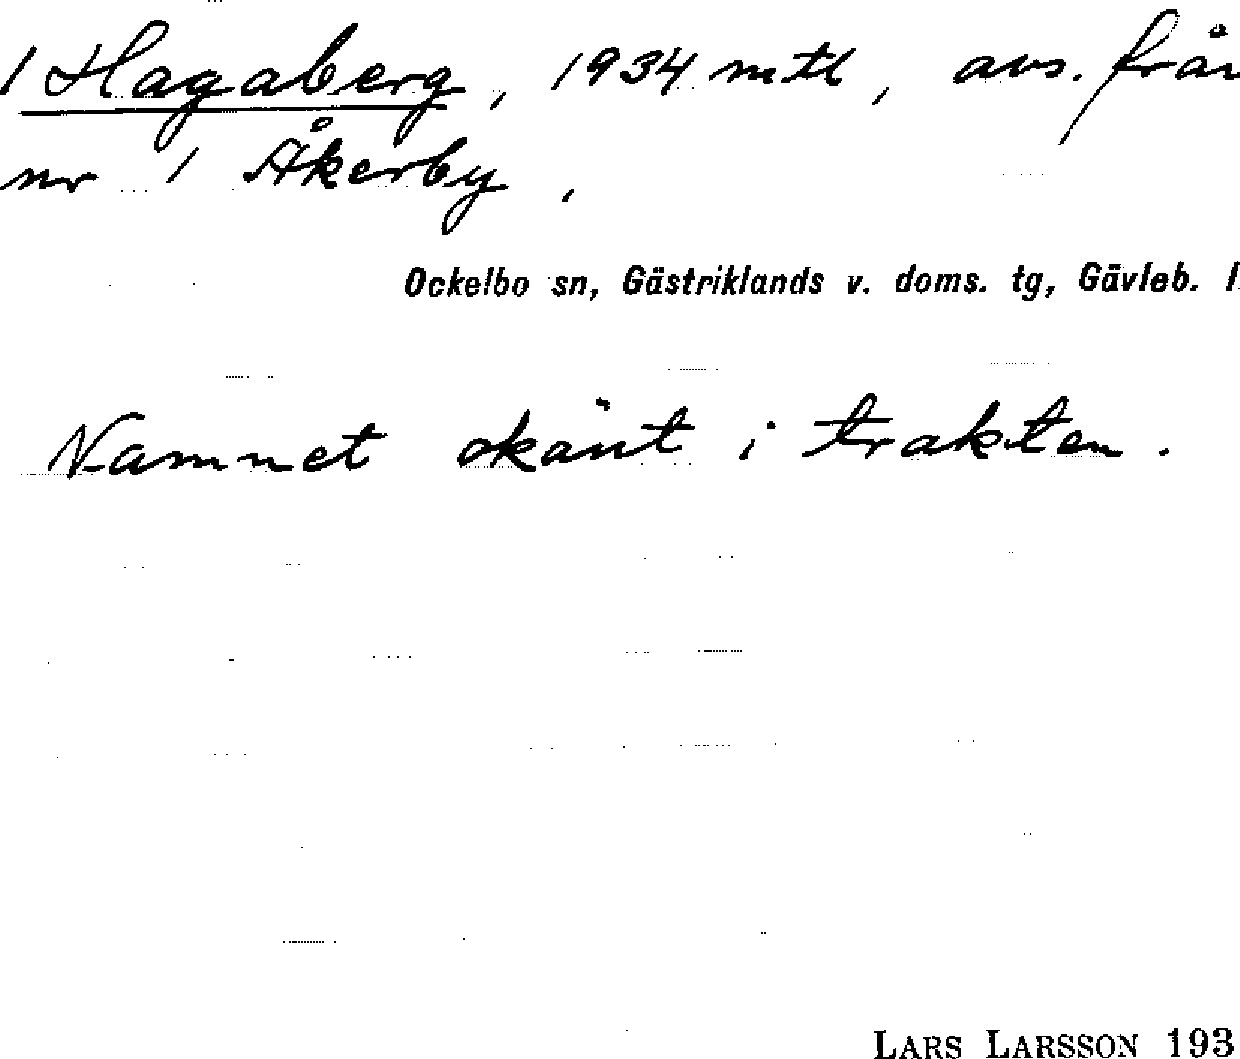 1 Hagaberg, 1934 mtl, avs. från
nr 1 Åkerby,
Ockelbo sn, Gästriklands v. doms. tg, Gävleb. l
Namnet okänt i trakten.
LARS LARSSON 193